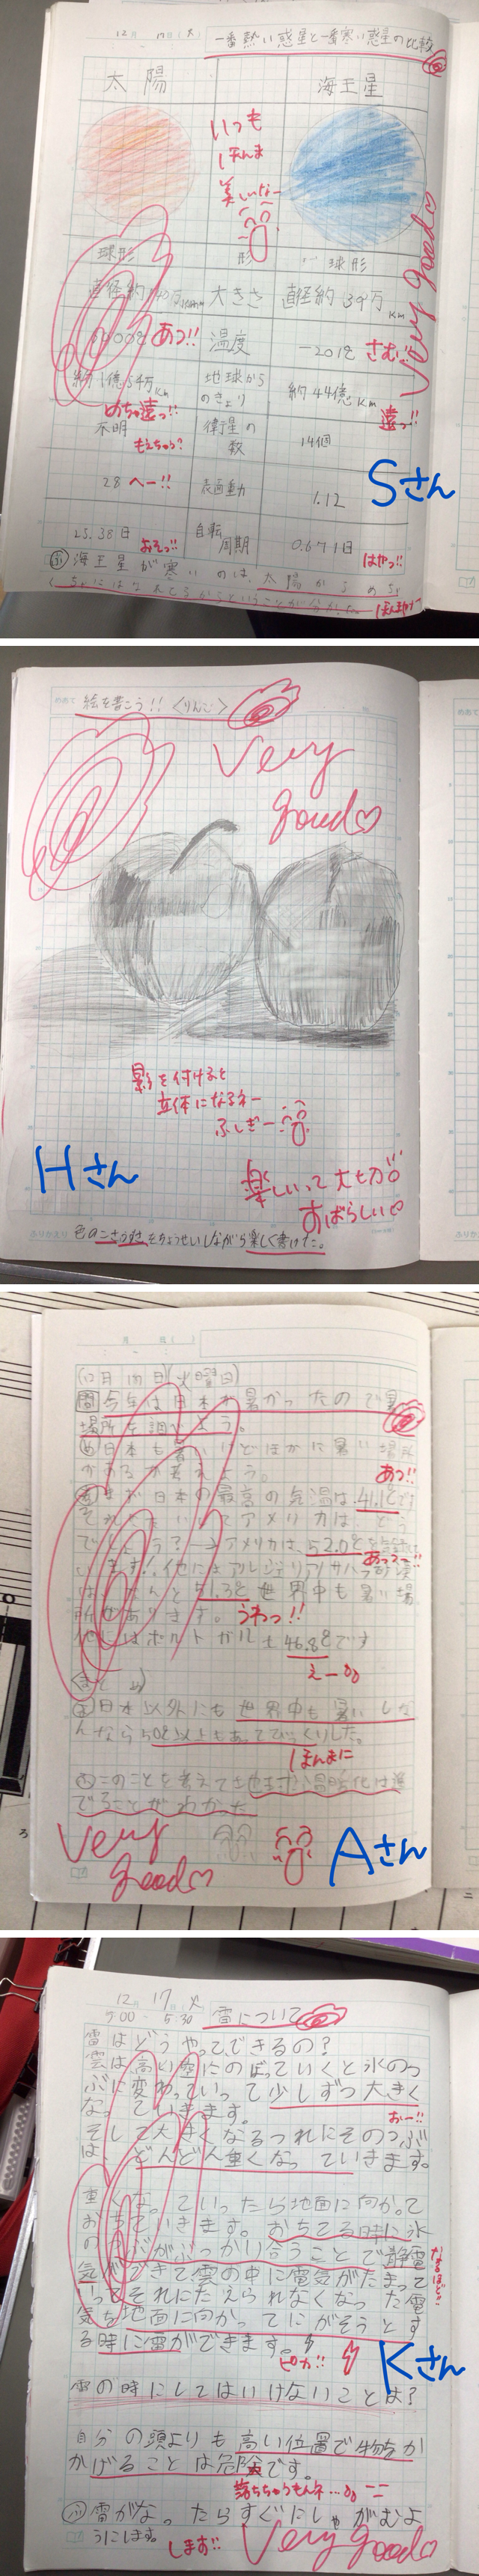 12月 17日(火)
一番熱い惑星と一番寒い惑星の比較
太陽
海王星
いつも
ほんま
美しいなー
球形
形
球形
直径約140万km
大きさ
直径約 34万km
6000℃
あつ!!
温度
-201℃
さむ!!
約1億54万km
地球から
のきょり
約44億km
めちゃ遠っ!!
遠っ!!
不明
もえちゃう?
衛星の
数
14個
28
へー!!
表面重力
1.12
25.38日
おそっ!!
自転
周期
0.671日
はやっ!!
Very good♡
Sさん
海王星が寒いのは、太陽からめちゃ
くちゃはなれてるからということが分かった。
ほんまやー
めあて
絵を書こう!!〈りんご〉
Very
good♡
影を付けると
立体になるネー
ふしぎー
Hさん
楽しいって大切
すばらしい
ふりかえり
色のこさうすさをちょうせいしながら楽しく書けた。
(12月 17日)(火曜日)
問 今年は日本が暑かったので暑い
場所を調べよう。
日本も暑いけどほかに暑い場所
があるか考えよう。
あつ!!
まず日本の最高の気温は41.1℃です
それにたいしてアメリカはどう
でしょう?→アメリカは、52.0℃を記録して
あっつー!!
います!他にはアルジェリアサハラ砂漠
はなんと51.3℃世界中も暑い場
所があります。
うわっ!!
他にはポルトガルも46.8℃です
えー
〈まとめ〉
日本以外にも世界中も暑いしな
んなら50℃以上もあってびっくりした。
ほんまに
このことを考えて地球温暖化は進
んでることがわかった
Very
good♡
Aさん
12月 17日 火
5:00～5:30
雷について
雷はどうやってできるの?
雲は高い空にのぼっていくと氷のつ
ぶに変わっていって少しずつ大きく
なっていきます。
おー!!
そして大きくなるつれにそのつぶ
は、どんどん重くなっていきます。
重くなっていったら地面に向かって
おちていきます。おちてる時に氷
のつぶがぶつかり合うことで静電
なるほど!!
気ができて雲の中に電気がたまって
いってそれにたえられなくなった電
気が地面に向かってにがそうとす
る時に雷ができます。
ピカ!!
Kさん
雷の時にしてはいけないことは?
自分の頭よりも高い位置で物をか
かげることは危険です。
落ちちゃうもんネ…
雷がなったらすぐにしゃがむよ
うにします。
します!!
Very good♡